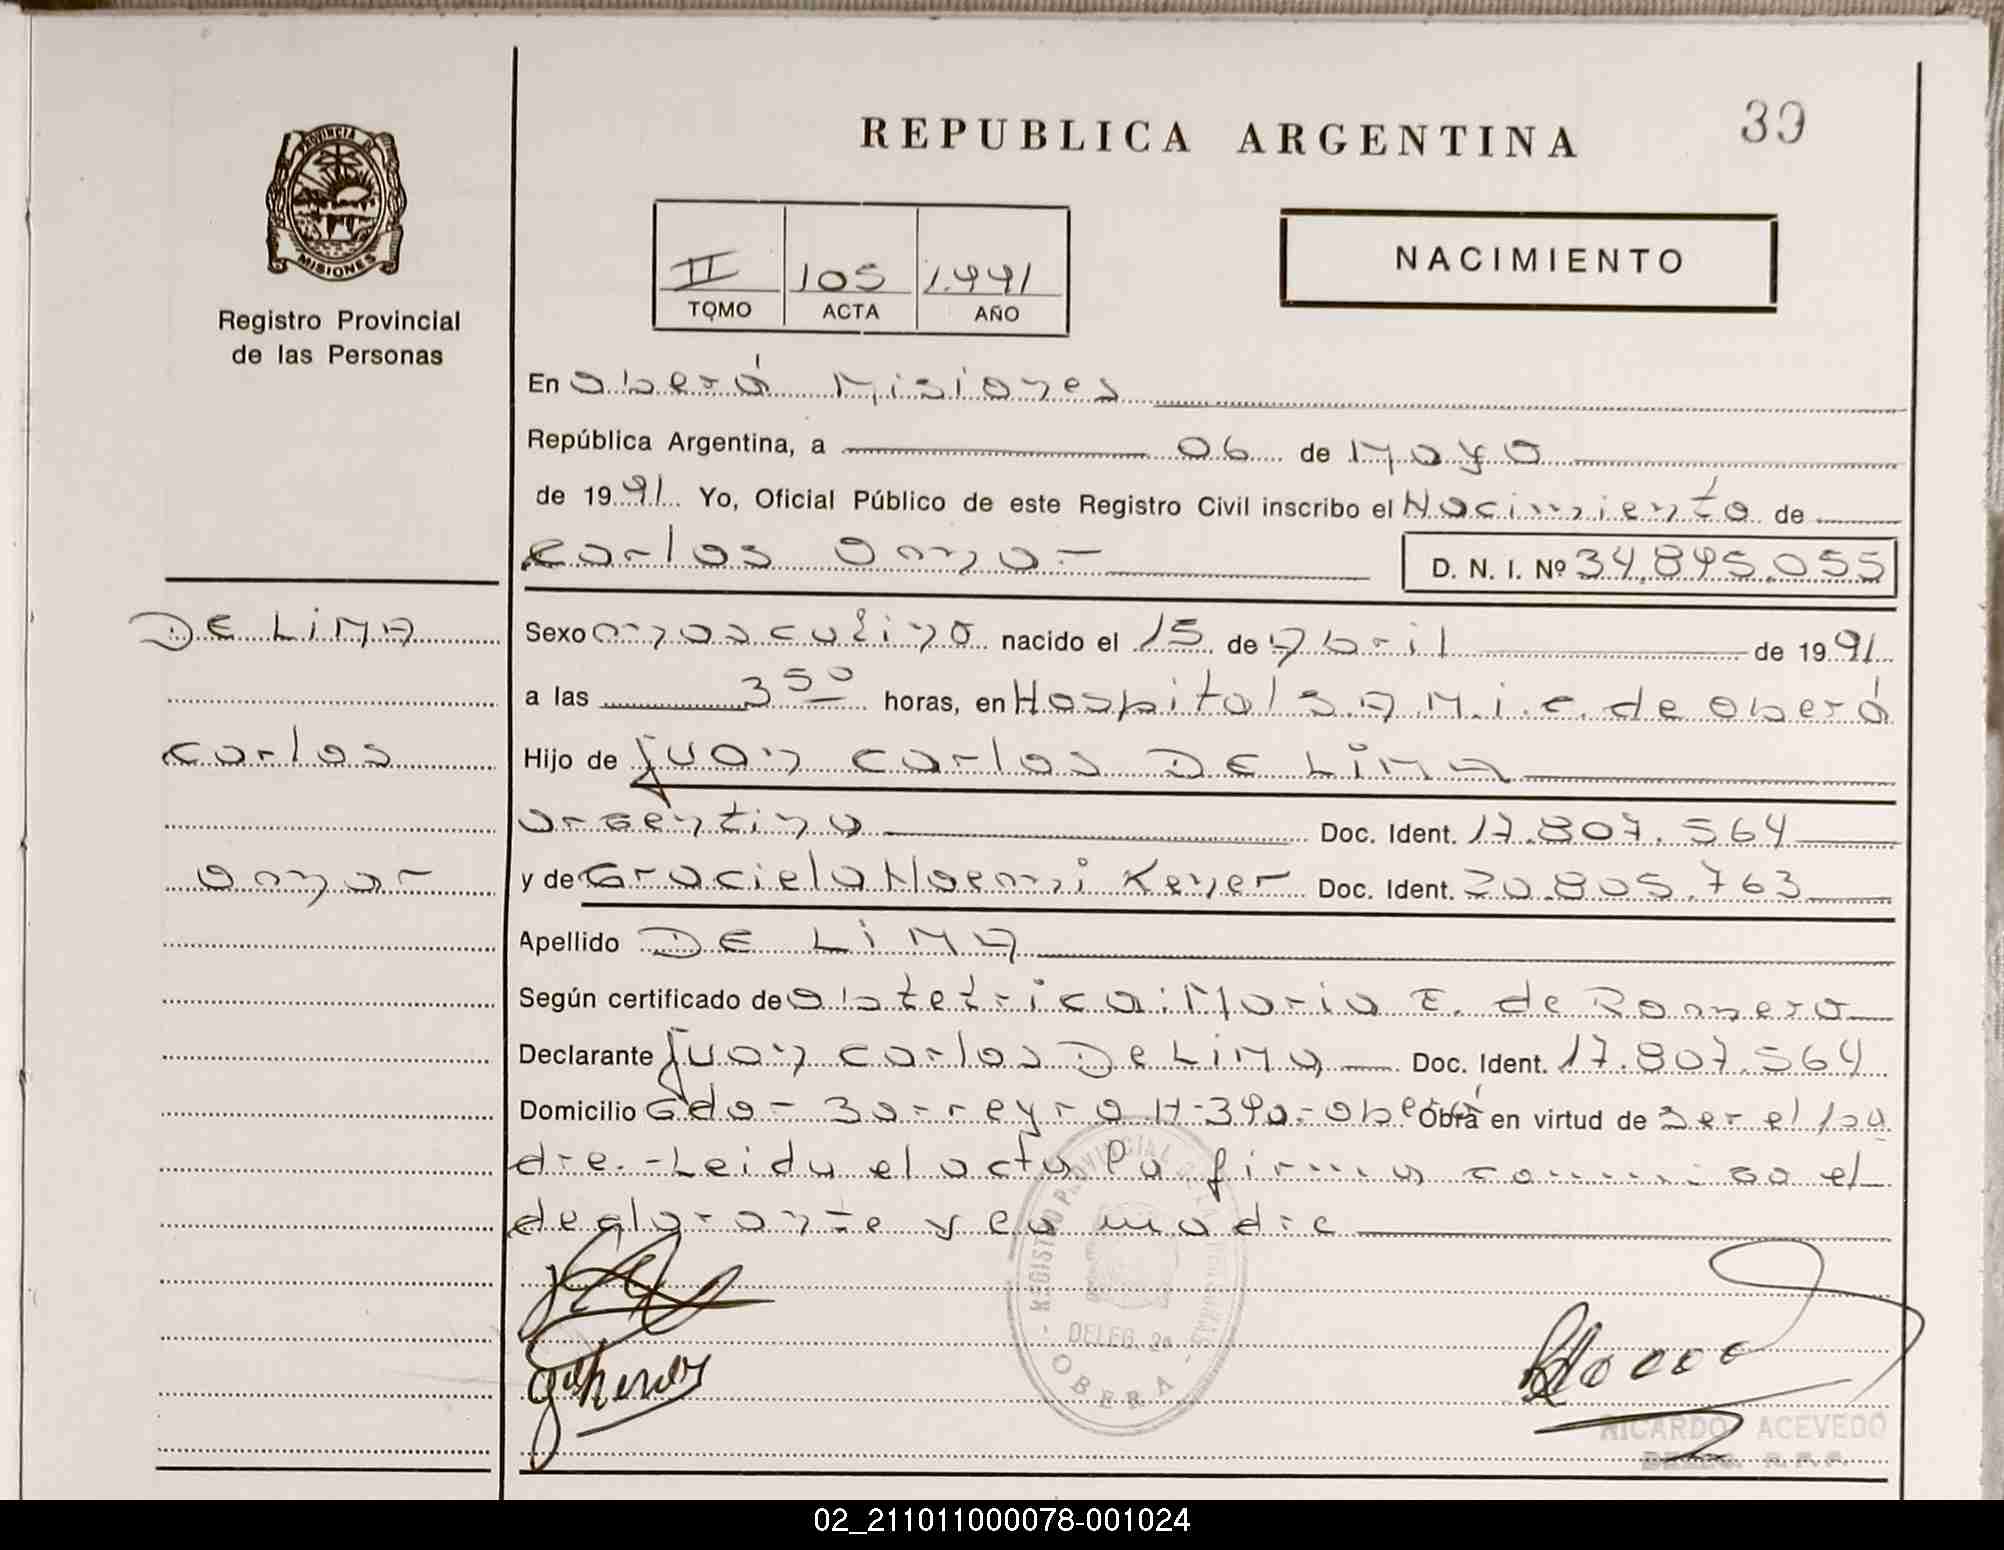 PROVINCIA DE
MISIONES
Registro Provincial
de las Personas
REPUBLICA ARGENTINA
39
II 105 1.991
TOMO ACTA AÑO
NACIMIENTO
En Oberá Misiones
República Argentina, a 06 de Mayo
de 1991 Yo, Oficial Público de este Registro Civil inscribo el Nacimiento de
Carlos Omar D. N. I. Nº 34.895.055
DE LIMA
Carlos
Omar
Sexo masculino nacido el 15 de Abril de 1991
a las 3 50 horas, en Hospital S.A.M.i.c. de Oberá
Hijo de Juan Carlos DE LIMA
argentino Doc. Ident. 17.807.564
y de Graciela Noemi Keyer Doc. Ident. 20.805.763
Apellido DE LIMA
Según certificado de Obtetrica: Maria E. de Romero
Declarante Juan Carlos De Lima Doc. Ident. 17.807.564
Domicilio Gdor Barreyro Nº 390-Oberá Obra en virtud de ser el pa
dre.-Leida el acta la firma conmigo el
declarante y la madre
REGISTRO PROVINCIAL DE LAS PERSONAS
DELEG. 2a
OBERA
RICARDO ACEVEDO
02_211011000078-001024